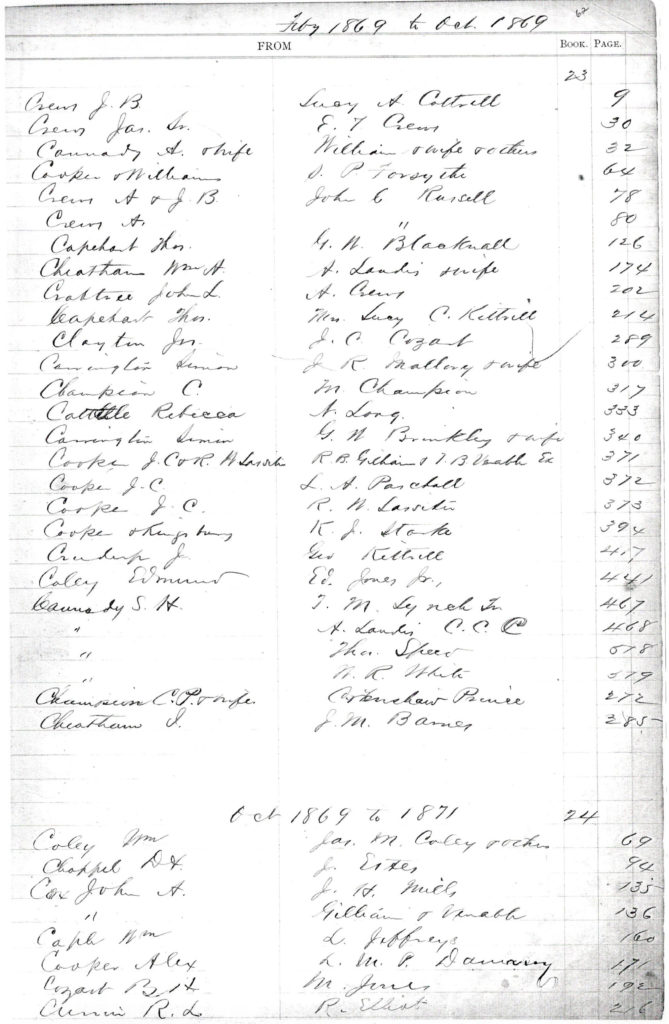 62
Feby 1869 to Oct. 1869
FROM BOOK. PAGE.
23
Crews J. B Lucy A Cottrell 9
Crews Jas. Sr. E. T Crews 30
Cannady A. & wife William & wife & others 32
Cooper & Williams P Forsythe 64
Crews A & J. B. John C Russell 78
Crews A. " 80
Capehart Thos. G. W. Blacknall 126
Cheatham Wm A. A. Landis & wife 174
Crabtree John L. A. Crews 202
Capehart Thos. Mrs. Lucy C. Kittrell 214
Clayton Jno. J. C Cozart 289
Carrington Simon J R Mallory & wife 300
Champion C. M. Champion 317
Rebecca N. Long. 333
Carrington Simon G. W Brinkley & wife 340
Cooper J. C & R. W Lassiter R. B. Gilliam & T. B Venable Ex 371
Cooper J. C. L. A. Paschall 372
Cooper J. C. R. W. Lassiter 373
Cooper & Kingsbury K. J. Stark 394
J. Geo Kittrell 417
Coley Edmund Ed. Jones Jr., 441
Cannady S. H. T. M. Lynch Tr. 467
" A. Landis C. C. C 468
" Thos. Speed 578
" W. R. White 579
Champion C. P. & wife Prince 272
Cheatham I. J. M. Barnes 285
Oct 1869 to 1871 24
Coley Wm Jas. M. Coley & others 69
Chappel D. H. J. Estes 94
Cox John A. J. H. Mills 135
" Gilliam & Venable 136
Wm L. Jeffreys 160
Cooper Alex L. M. P. 171
Cozart B. H. M. Jones 192
R. L. R. Elliot 216